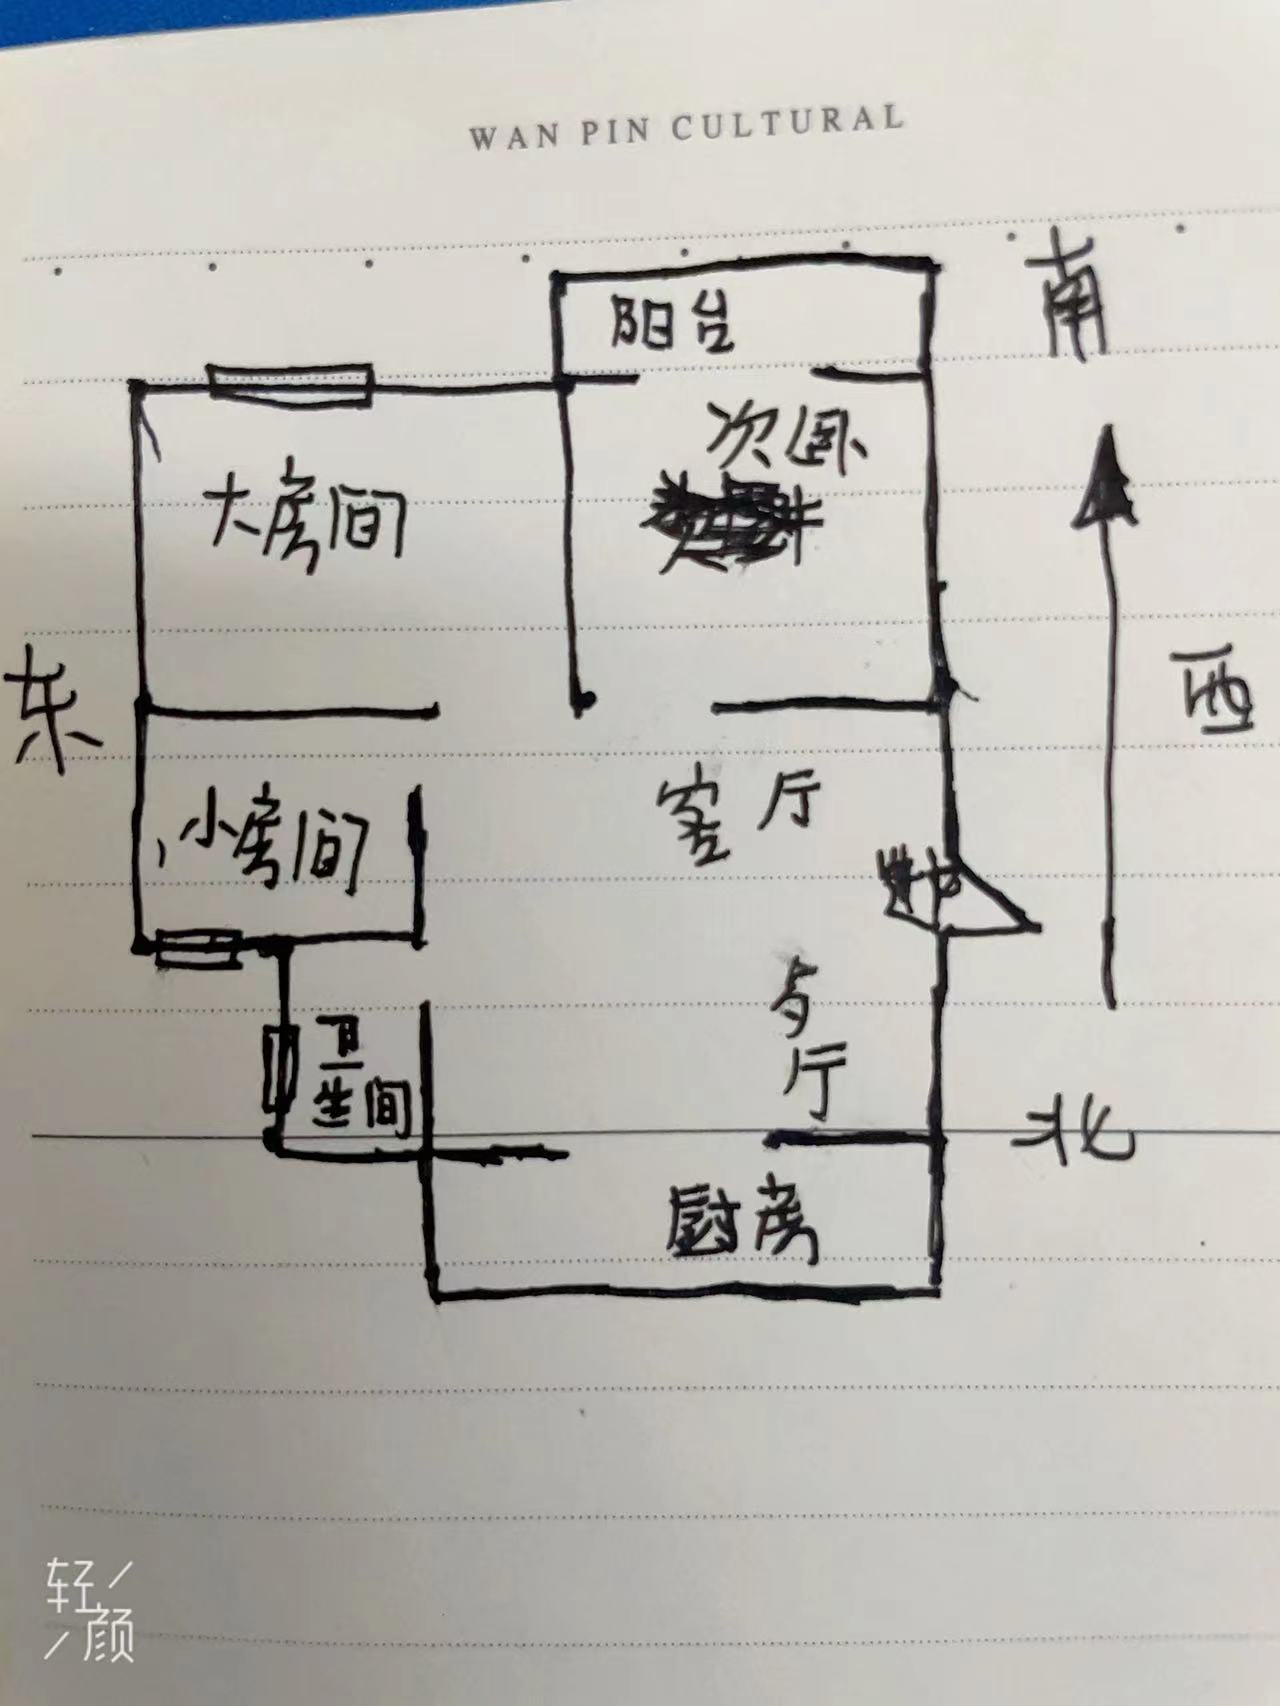 WAN PIN CULTURAL
南
阳台
次卧
大房间
东
西
小房间
客厅
厅
卫
生间
北
厨房
轻
颜